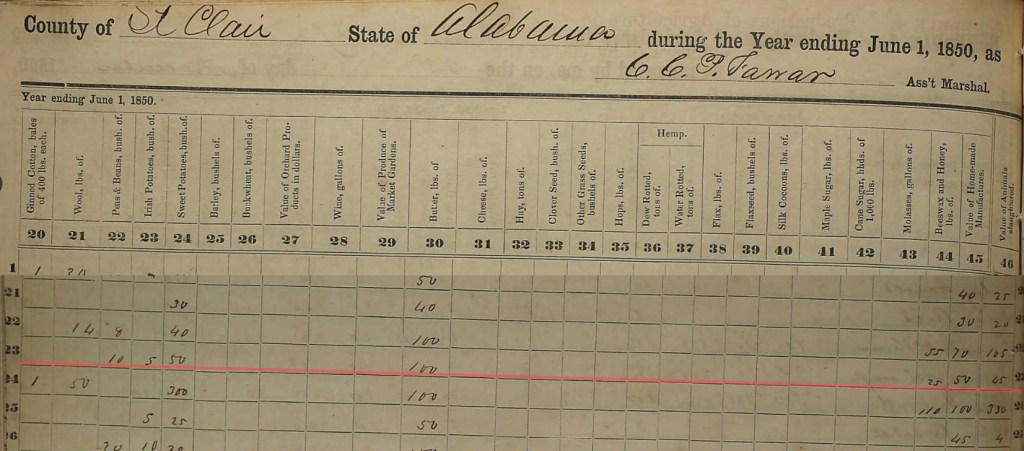 County of St Clair State of Alabama during the Year ending June 1, 1850, as
C. C. P. Farrar Ass't Marshal.
Year ending June 1, 1850.
Ginned Cotton, bales of 400 lbs. each.
Wool, lbs. of.
Peas & Beans, bush. of.
Irish Potatoes, bush. of.
Sweet Potatoes, bush. of.
Barley, bushels of.
Buckwheat, bushels of.
Value of Orchard Products in dollars.
Wine, gallons of.
Value of Produce of Market Gardens.
Butter, lbs. of.
Cheese, lbs. of.
Hay, tons of.
Clover Seed, bush. of.
Other Grass Seeds, bushels of.
Hops, lbs. of.
Hemp.
Dew Rotted, tons of.
Water Rotted, tons of.
Flax, lbs. of.
Flaxseed, bushels of.
Silk Cocoons, lbs. of.
Maple Sugar, lbs. of.
Cane Sugar, hhds. of 1,000 lbs.
Molasses, gallons of.
Beeswax and Honey, lbs. of.
Value of Home-made Manufactures.
Value of Animals slaughtered.
20 21 22 23 24 25 26 27 28 29 30 31 32 33 34 35 36 37 38 39 40 41 42 43 44 45 46
1 1 20 50
21 30 40 40 25
22 14 8 40 100 30 20
23 10 5 50 100 55 70 105
24 1 50 300 100 25 50 45
25 5 25 50 110 100 330
26 20 10 45 4